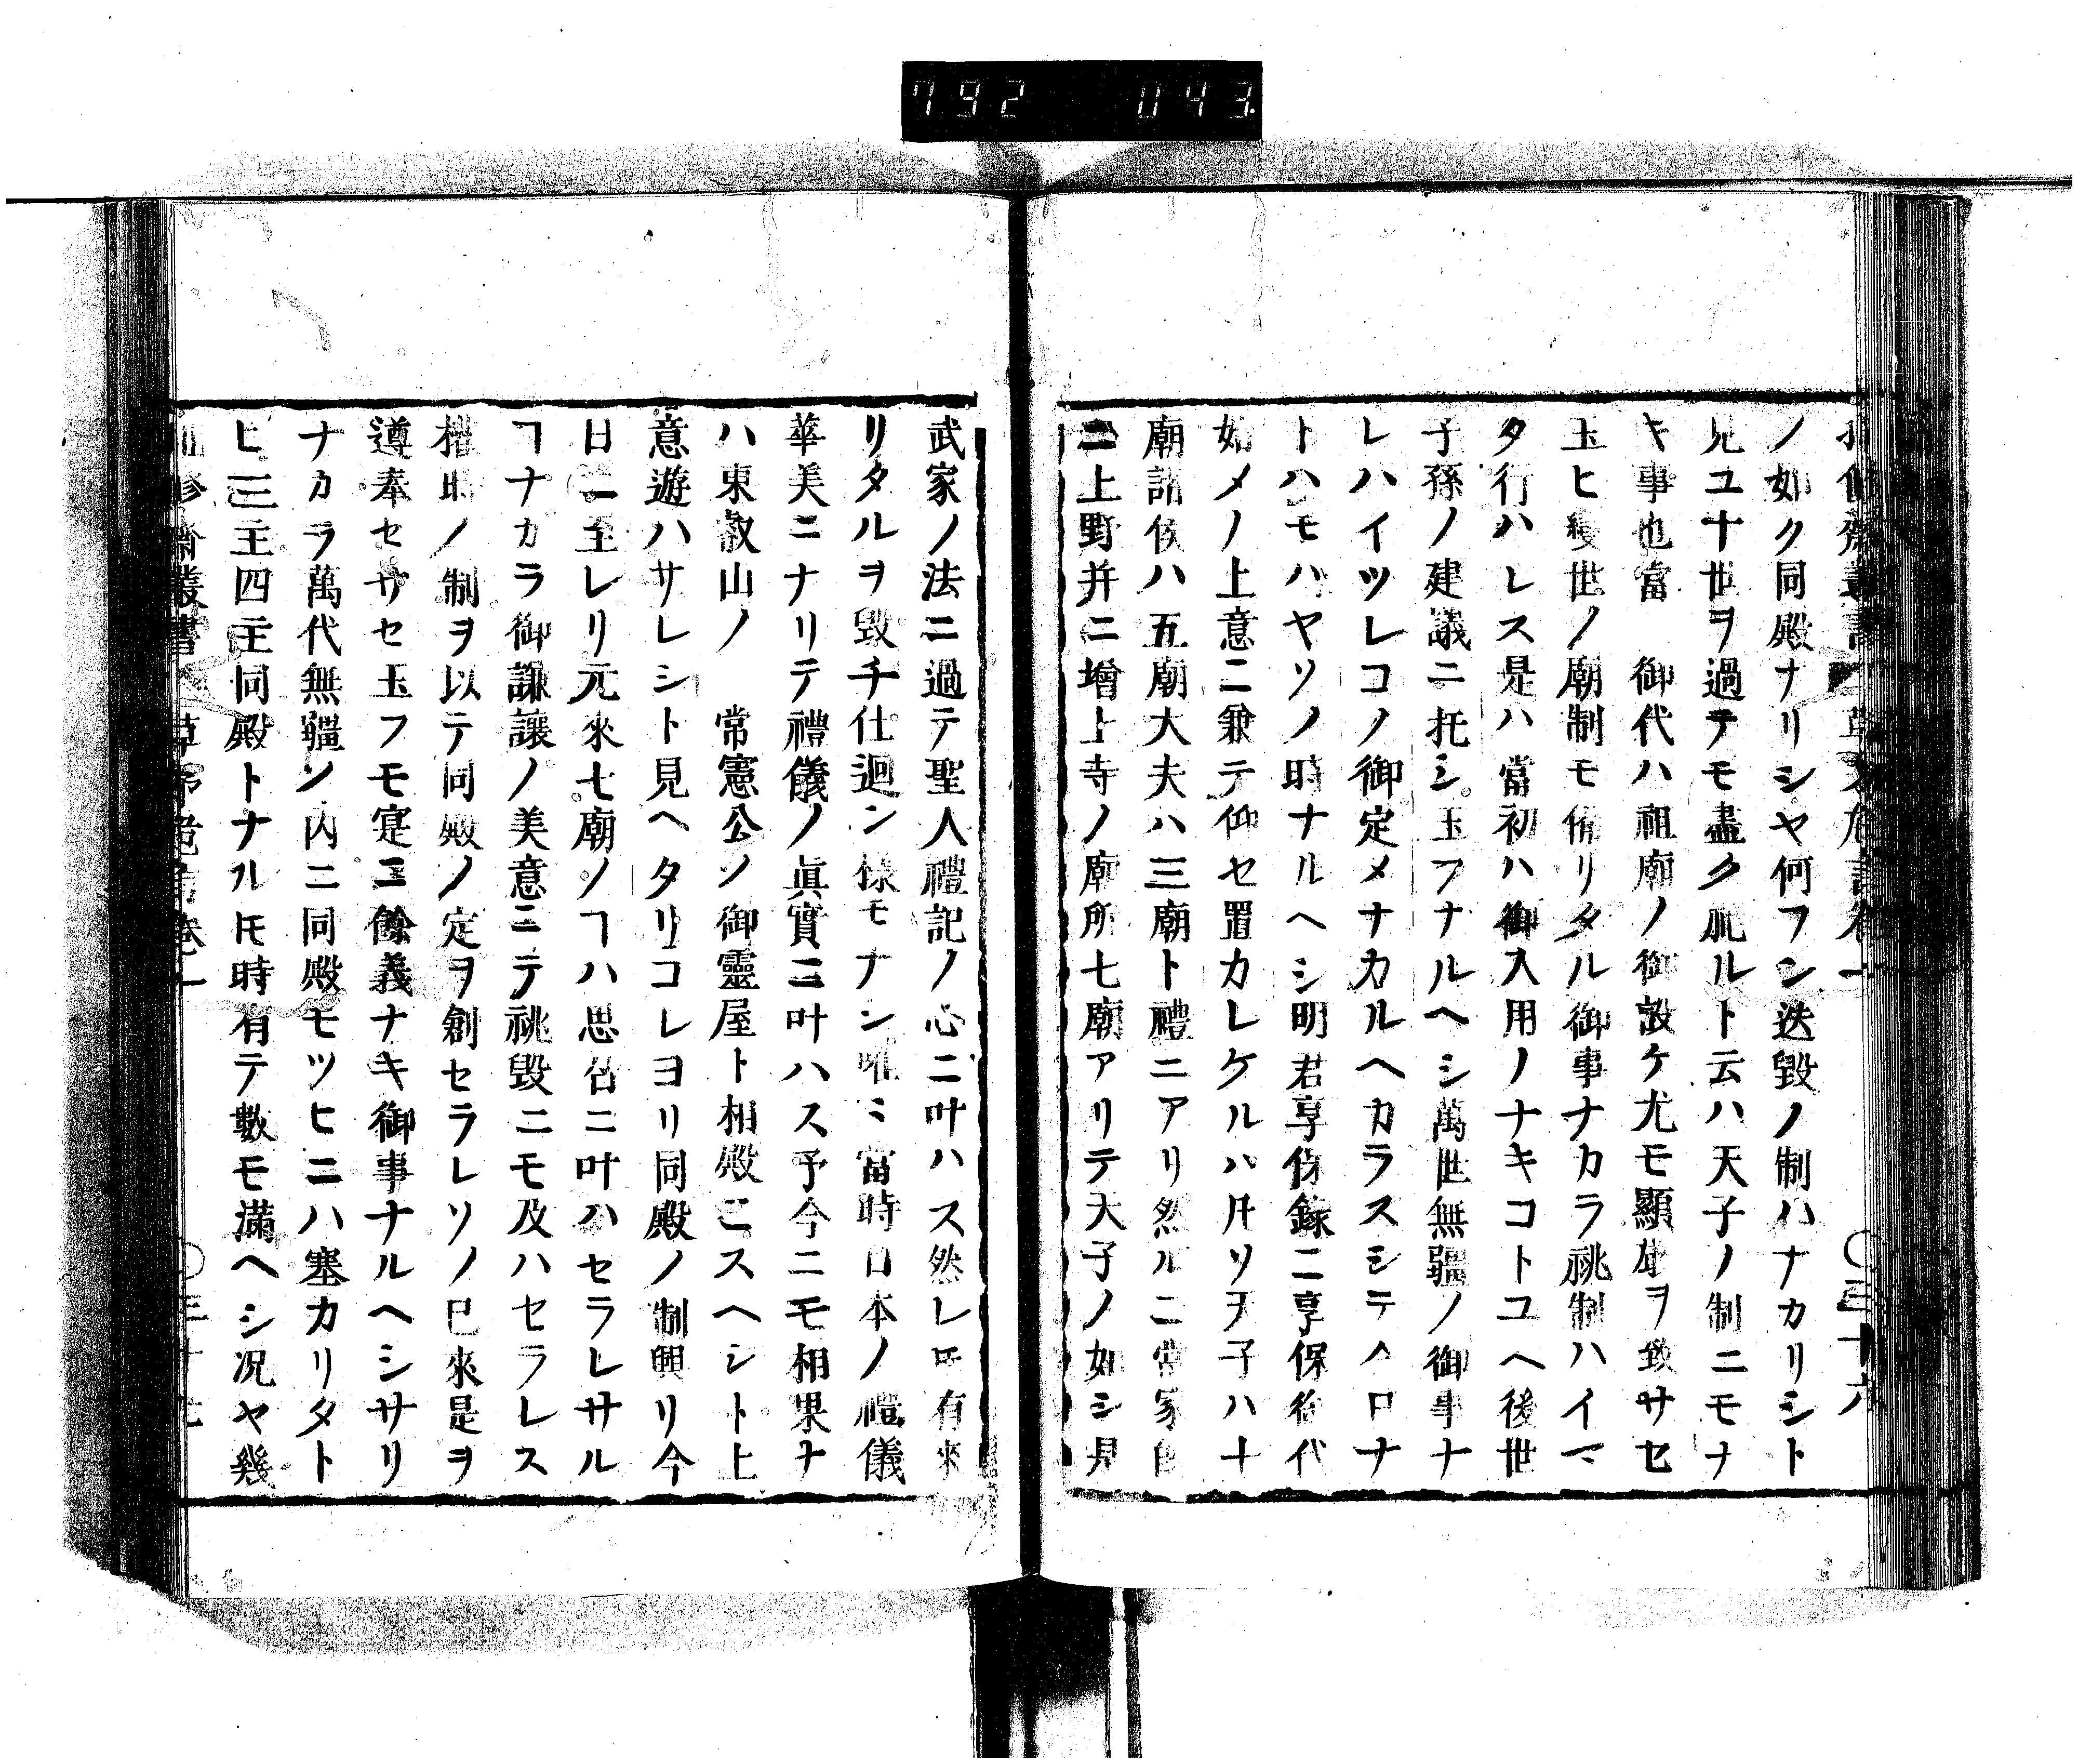 792 043
ノ如ク同殿ナリシヤ何フン迭毀ノ制ハナカリシト
見ユ十世ヲ過テモ盡ク祧ルト云ハ天子ノ制ニモナ
キ事也當　御代ハ祖廟ノ御設ケ尤モ顯赫ヲ致サセ
玉ヒ幾世ノ廟制モ備リタル御事ナカラ祧制ハイマ
タ行ハレス是ハ當初ハ御入用ノナキコトユヘ後世
子孫ノ建議ニ托シ玉フナルヘシ萬世無疆ノ御事ナ
レハイツレコノ御定メナカルヘカラスシテハロナ
トハモハヤソノ時ナルヘシ明君享保錄ニ享保御代
始メノ上意ニ兼テ仰セ置カレケルハ凡ソ天子ハ十
廟諸侯ハ五廟大夫ハ三廟ト禮ニアリ然ルニ當家
ニ上野并ニ增上寺ノ廟所七廟アリテ天子ノ如シ是
武家ノ法ニ過テ聖人禮記ノ心ニ叶ハス然レ𪜈有來
リタルヲ毀チ仕迴ン樣モナシ唯ミ當時日本ノ禮儀
華美ニナリテ禮儀ノ眞實ニ叶ハス予今ニモ相果ナ
ハ東叡山ノ　常憲公ノ御靈屋ト相殿ニスヘシト上
意遊ハサレシト見ヘタリコレヨリ同殿ノ制興リ今
日ニ至レリ元來七廟ノヿハ思召ニ叶ハセラレサル
ヿナカラ御謙讓ノ美意ニテ祧毀ニモ及ハセラレス
權時ノ制ヲ以テ同殿ノ定ヲ創セラレソノ已來是ヲ
遵奉セサセ玉フモ寔ニ餘義ナキ御事ナルヘシサリ
ナカラ萬代無疆ノ內ニ同殿モツヒニハ塞カリタト
ヒ三主四主同殿トナル𪜈時有テ數モ滿ヘシ况ヤ幾